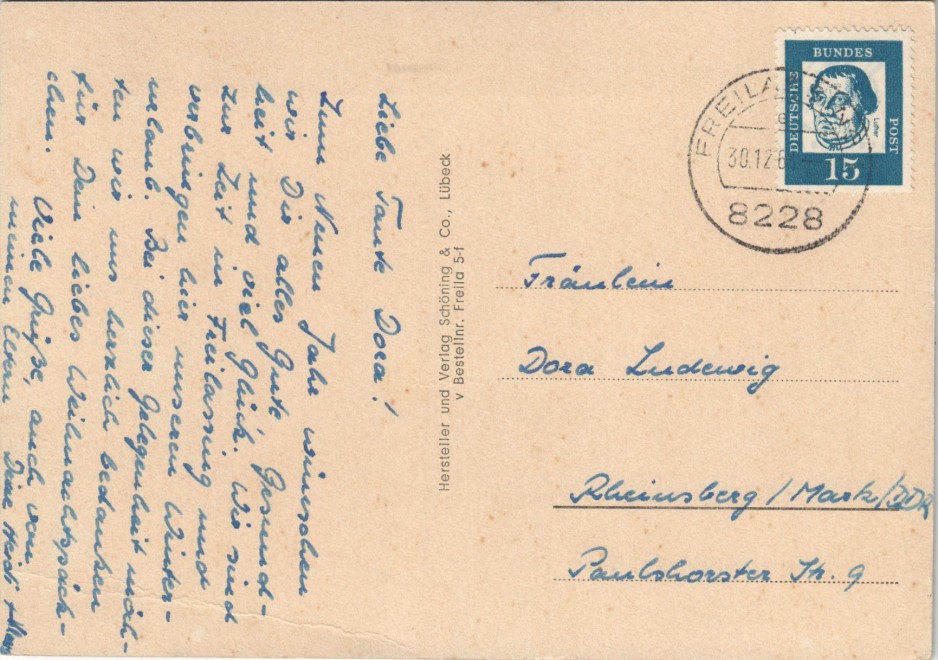 Liebe Tante Dora!
Zum Neuen Jahr wünschen
wir Dir alles Gute Gesund-
heit und viel Glück. Wir sind
zur Zeit in Freilassing und
verbringen hier unseren Winter-
urlaub. Bei dieser Gelegenheit möch-
ten wir uns herzlich bedanken
für Dein liebes Weihnachtspäck-
chen.
Viele Grüße, auch von
meinen Eltern Deine Heidi +
Hersteller und Verlag Schöning & Co., Lübeck
v Bestellnr. Freila 5-f
DEUTSCHE
BUNDES
POST
Luther
15
30.12.6
8228
Fräulein
Dora Ludewig
Rheinsberg/Mark/DDR
Paulshorster Str. 9